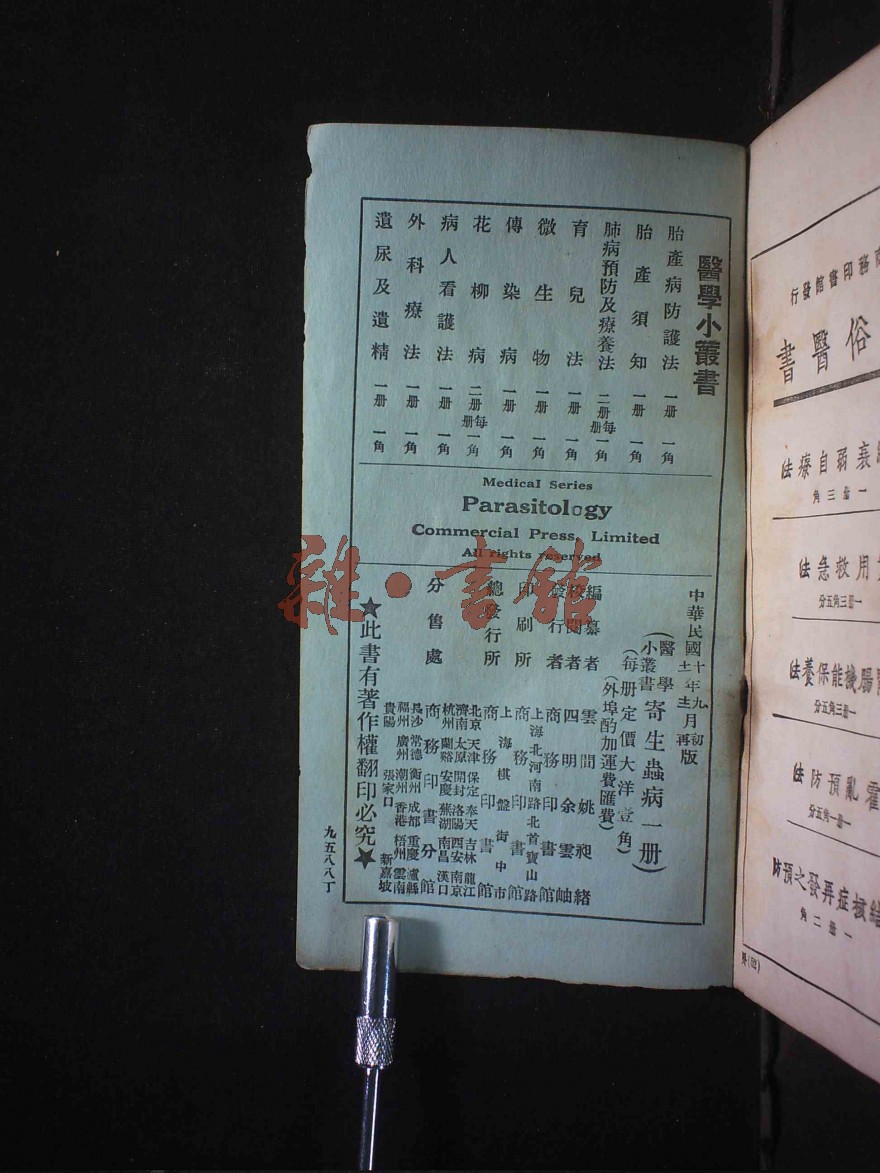 醫學小叢書
胎產病防護法 一册 一角
胎產須知 一册 一角
肺病預防及療養法 二册每册 一角
育兒法 一册 一角
微生物 一册 一角
傳染病 一册 一角
花柳病 二册每册 一角
病人看護法 一册 一角
外科療法 一册 一角
遺尿及遺精 一册 一角
Medical Series
Parasitology
Commercial Press, Limited
All rights reserved
中華民國十一年九月初版
再版
(醫學小叢書 寄生蟲病一册)
(每册定價大洋壹角)
(外埠酌加運費匯費)
編纂者 雲間姚昶緒
校閱者 四明余雲岫
發行者 商務印書館
印刷所 上海北河南路北首寶山路 商務印書館
總發行所 上海棋盤街中市 商務印書館
分售處 商務印書分館
北京 天津 保定 奉天 吉林 龍江
濟南 太原 開封 洛陽 西安 南京
杭州 蘭谿 安慶 蕪湖 南昌 漢口
長沙 常德 衡州 成都 重慶 瀘縣
福州 廣州 潮州 香港 梧州 雲南
貴陽 張家口 新嘉坡
★此書有著作權翻印必究★
九五八八丁
雜·書館
商務印書館發行
俗醫書
衰弱自療法
一册三角
用救急法
一册三角五分
腸機能保養法
一册三角五分
霍亂預防法
一册一角五分
核症再發之預防
一册二角